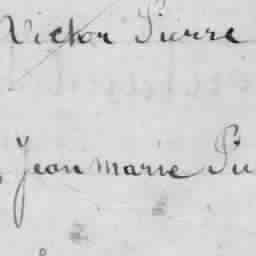 Victor Pierre
Jean marie Pi